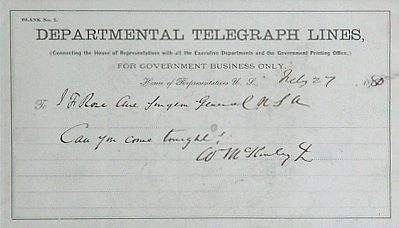 BLANK No. 2.
DEPARTMENTAL TELEGRAPH LINES,
(Connecting the House of Representatives with all the Executive Departments and the Government Printing Office,)
FOR GOVERNMENT BUSINESS ONLY.
House of Representatives U. S., Feby 27 188
To J F Rose Surgeon General U S A
Can you come tonight?
W McKinley Jr